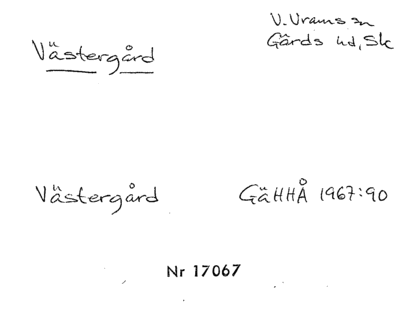 Västergård
V. Vrams sn
Gärds hd, Sk
Västergård GäHHÅ 1967:90
Nr 17067